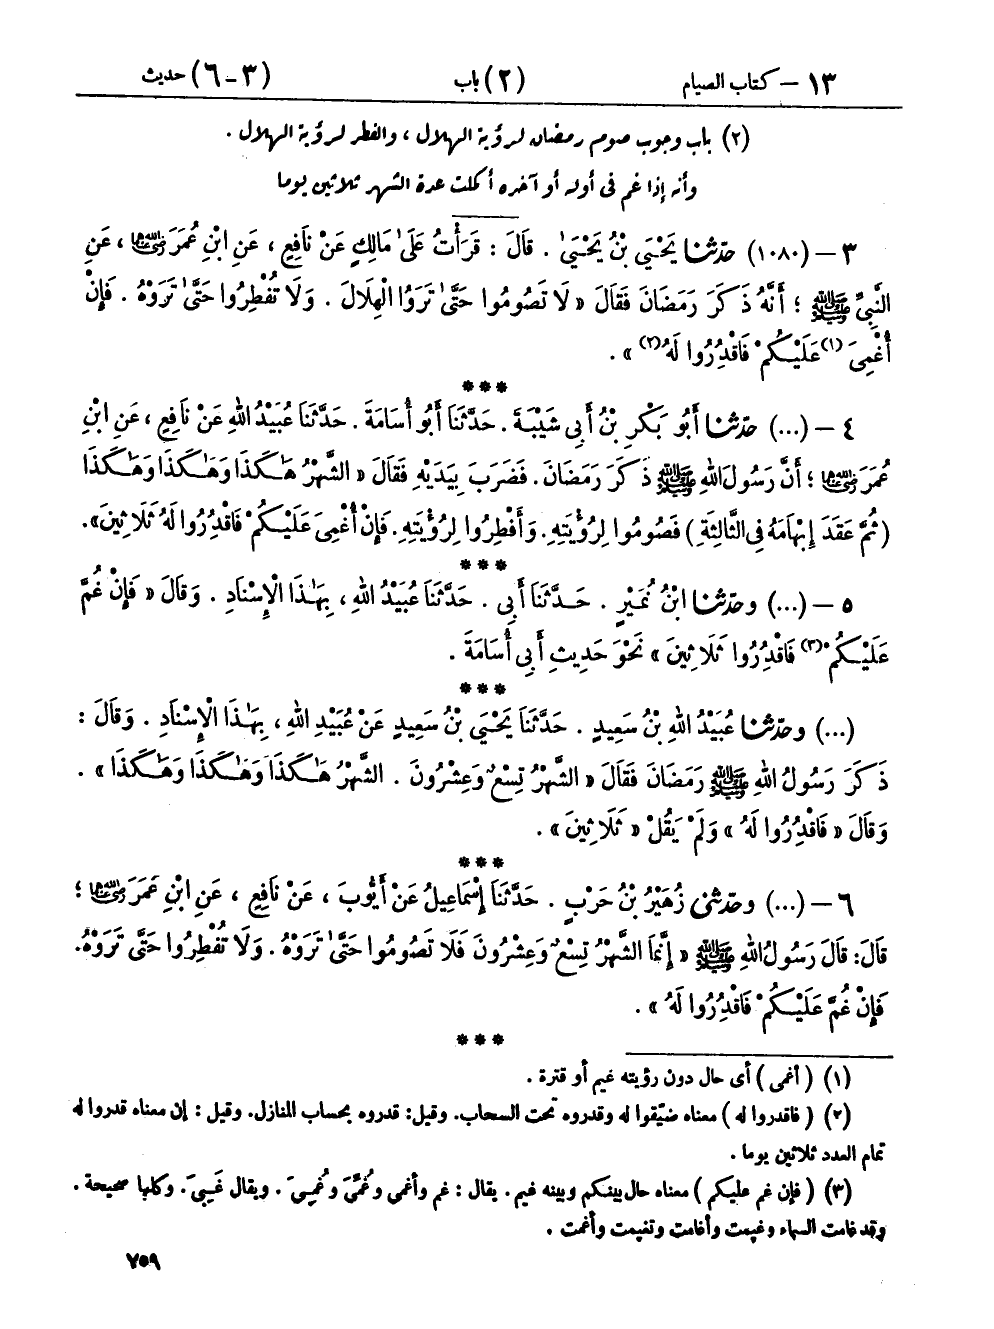 ١٣ – كتاب الصيام (٢) باب (٣-٦) حديث
(٢) باب وجوب صوم رمضان لرؤية الهلال ، والفطر لرؤية الهلال .
وأنه إذا غم فى أوله أو آخره أكملت عدة الشهر ثلاثين يوما
٣ – (١٠٨٠) حدّثنا يَحْيَى بْنُ يَحْيَىٰ . قَالَ : قَرَأْتُ عَلَىٰ مَالِكٍ عَنْ نَافِعٍ ، عَنِ ابْنِ عُمَرَ رضي الله عنهما ، عَنِ
النَّبِيِّ ﷺ ؛ أَنَّهُ ذَكَرَ رَمَضَانَ فَقَالَ « لَا تَصُومُوا حَتَّىٰ تَرَوُا الْهِلَالَ . وَلَا تُفْطِرُوا حَتَّىٰ تَرَوْهُ . فَإِنْ
أُغْمِىَ (١) عَلَيْكُمْ فَاقْدُرُوا لَهُ (٢) » .
***
٤ – (...) حدّثنا أَبُو بَكْرِ بْنُ أَبِى شَيْبَةَ . حَدَّثَنَا أَبُو أُسَامَةَ . حَدَّثَنَا عُبَيْدُ اللهِ عَنْ نَافِعٍ ، عَنِ ابْنِ
عُمَرَ رضي الله عنهما ؛ أَنَّ رَسُولَ اللهِ ﷺ ذَكَرَ رَمَضَانَ . فَضَرَبَ بِيَدَيْهِ فَقَالَ « الشَّهْرُ هَٰكَذَا وَهَٰكَذَا وَهَٰكَذَا
( ثُمَّ عَقَدَ إِبْهَامَهُ فِى الثَّالِثَةِ ) فَصُومُوا لِرُؤْيَتِهِ . وَأَفْطِرُوا لِرُؤْيَتِهِ . فَإِنْ أُغْمِىَ عَلَيْكُمْ فَاقْدُرُوا لَهُ ثَلَاثِينَ» .
***
٥ – (...) وحدّثنا ابْنُ نُمَيْرٍ . حَدَّثَنَا أَبِى . حَدَّثَنَا عُبَيْدُ اللهِ ، بِهَٰذَا الْإِسْنَادِ . وَقَالَ « فَإِنْ غُمَّ
عَلَيْكُمْ (٣) فَاقْدُرُوا ثَلَاثِينَ » نَحْوَ حَدِيثِ أَبِى أُسَامَةَ .
***
(...) وحدّثنا عُبَيْدُ اللهِ بْنُ سَعِيدٍ . حَدَّثَنَا يَحْيَى بْنُ سَعِيدٍ عَنْ عُبَيْدِ اللهِ ، بِهَٰذَا الْإِسْنَادِ . وَقَالَ :
ذَكَرَ رَسُولُ اللهِ ﷺ رَمَضَانَ فَقَالَ « الشَّهْرُ تِسْعٌ وَعِشْرُونَ . الشَّهْرُ هَٰكَذَا وَهَٰكَذَا وَهَٰكَذَا » .
وَقَالَ « فَاقْدُرُوا لَهُ » وَلَمْ يَقُلْ « ثَلَاثِينَ » .
***
٦ – (...) وحدّثنى زُهَيْرُ بْنُ حَرْبٍ . حَدَّثَنَا إِسْمَاعِيلُ عَنْ أَيُّوبَ ، عَنْ نَافِعٍ ، عَنِ ابْنِ عُمَرَ رضي الله عنهما ؛
قَالَ : قَالَ رَسُولُ اللهِ ﷺ « إِنَّمَا الشَّهْرُ تِسْعٌ وَعِشْرُونَ فَلَا تَصُومُوا حَتَّىٰ تَرَوْهُ . وَلَا تُفْطِرُوا حَتَّىٰ تَرَوْهُ .
فَإِنْ غُمَّ عَلَيْكُمْ فَاقْدُرُوا لَهُ » .
***
(١) ( أغمى ) أى حال دون رؤيته غيم أو قترة .
(٢) ( فاقدروا له ) معناه ضيّقوا له وقدروه تحت السحاب . وقيل : قدروه بحساب المنازل . وقيل : إن معناه قدروا له
تمام العدد ثلاثين يوما .
(٣) ( فإن غم عليكم ) معناه حال بينكم وبينه غيم . يقال : غم وأغمى وغُمِّىَ وغُمِىَ . ويقال غَبِىَ . وكلها صحيحة .
وقد غامت السماء وغيمت وأغامت وتغيمت وأغمت .
٧٥٩